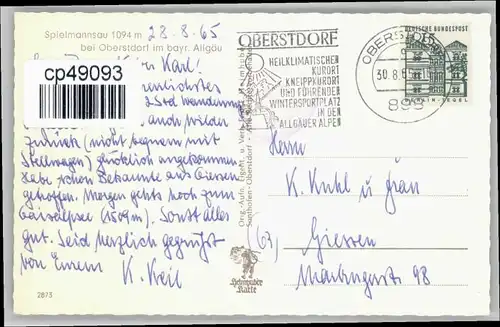 Spielmannsau 1094 m 28.8.65
bei Oberstdorf im bayr. Allgäu
Karl!
cp49093
2 Std Wanderung
auch wieder
zurück (nicht bequem mit
Stellwagen) glücklich angekommen.
Habe schon Bekannte aus Giessen
getroffen. Morgen gehts noch zum
Gaisalpsee (1509m). Sonst alles
gut. Seid herzlich gegrüßt
von Eurem K. Keil
2873
Heimhuber
Karte
OBERSTDORF
HEILKLIMATISCHER
KURORT
KNEIPPKURORT
UND FÜHRENDER
WINTERSPORTPLATZ
IN DEN
ALLGÄUER ALPEN
OBERSTDORF
30.8.65
898
DEUTSCHE BUNDESPOST
Herrn
K. Kuhl u Frau
(63) Giessen
Marburgerstr 98